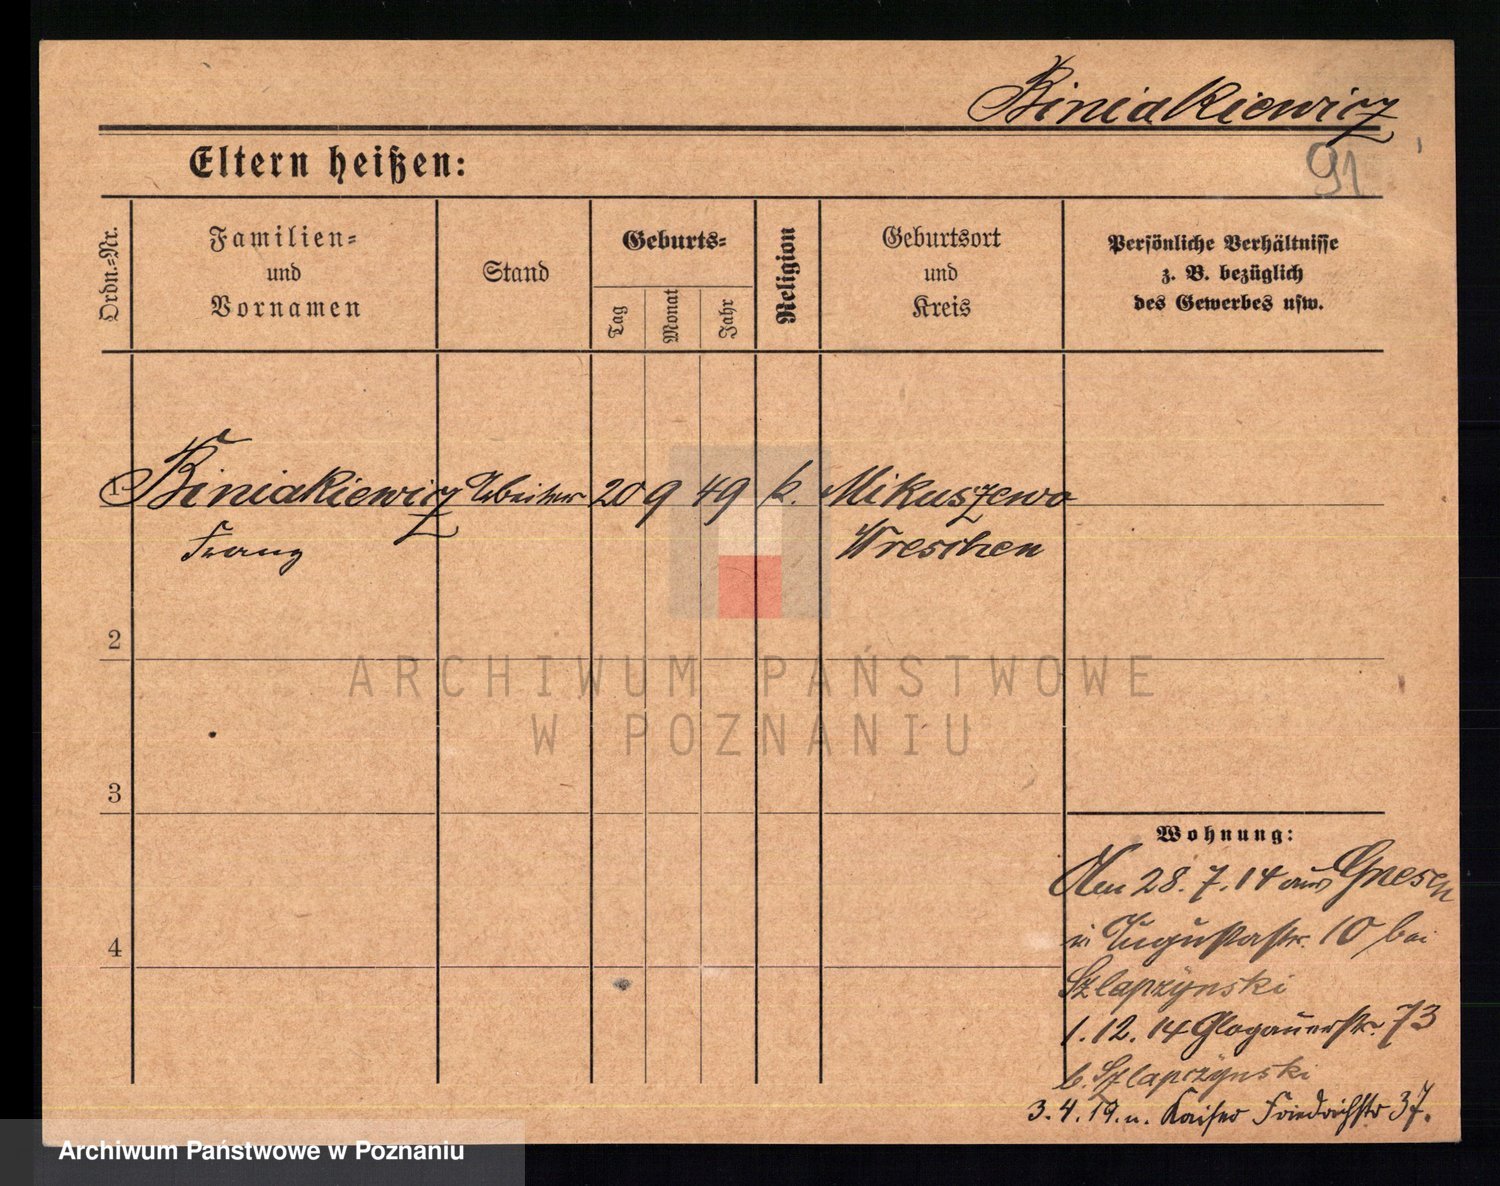 Biniakiewicz
91
Eltern heißen:
Ordn.-Nr.
Familien-
und
Vornamen
Stand
Geburts-
Tag
Monat
Jahr
Religion
Geburtsort
und
Kreis
Persönliche Verhältnisse
z. B. bezüglich
des Gewerbes usw.
1 Biniakiewicz Arbeiter 20 9 49 k. Mikuszewo
Franz Wreschen
2
3
4
ARCHIWUM PAŃSTWOWE
W POZNANIU
Wohnung:
Am 28. 7. 14 aus Gnesen
n. Augustastr. 10 bei
Szlapzynski
1. 12. 14 Glogauerstr. 73
b. Szlapczynski
3. 4. 19. n. Kaiser Friedrichstr 37.
Archiwum Państwowe w Poznaniu